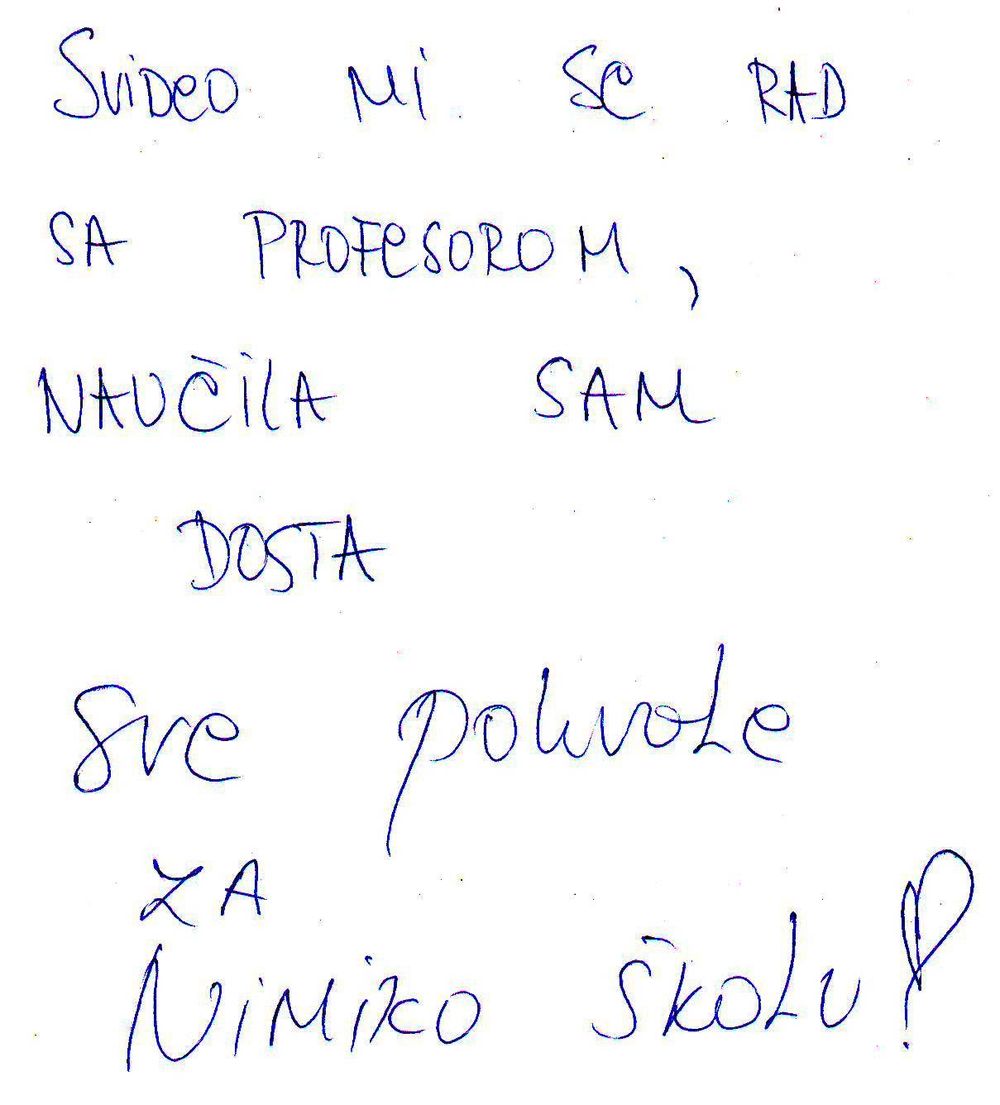 Svideo mi se RAD
SA PROFESOROM,
NAUČILA SAM
DOSTA
Sve pohvale
ZA
Nimiko školu!